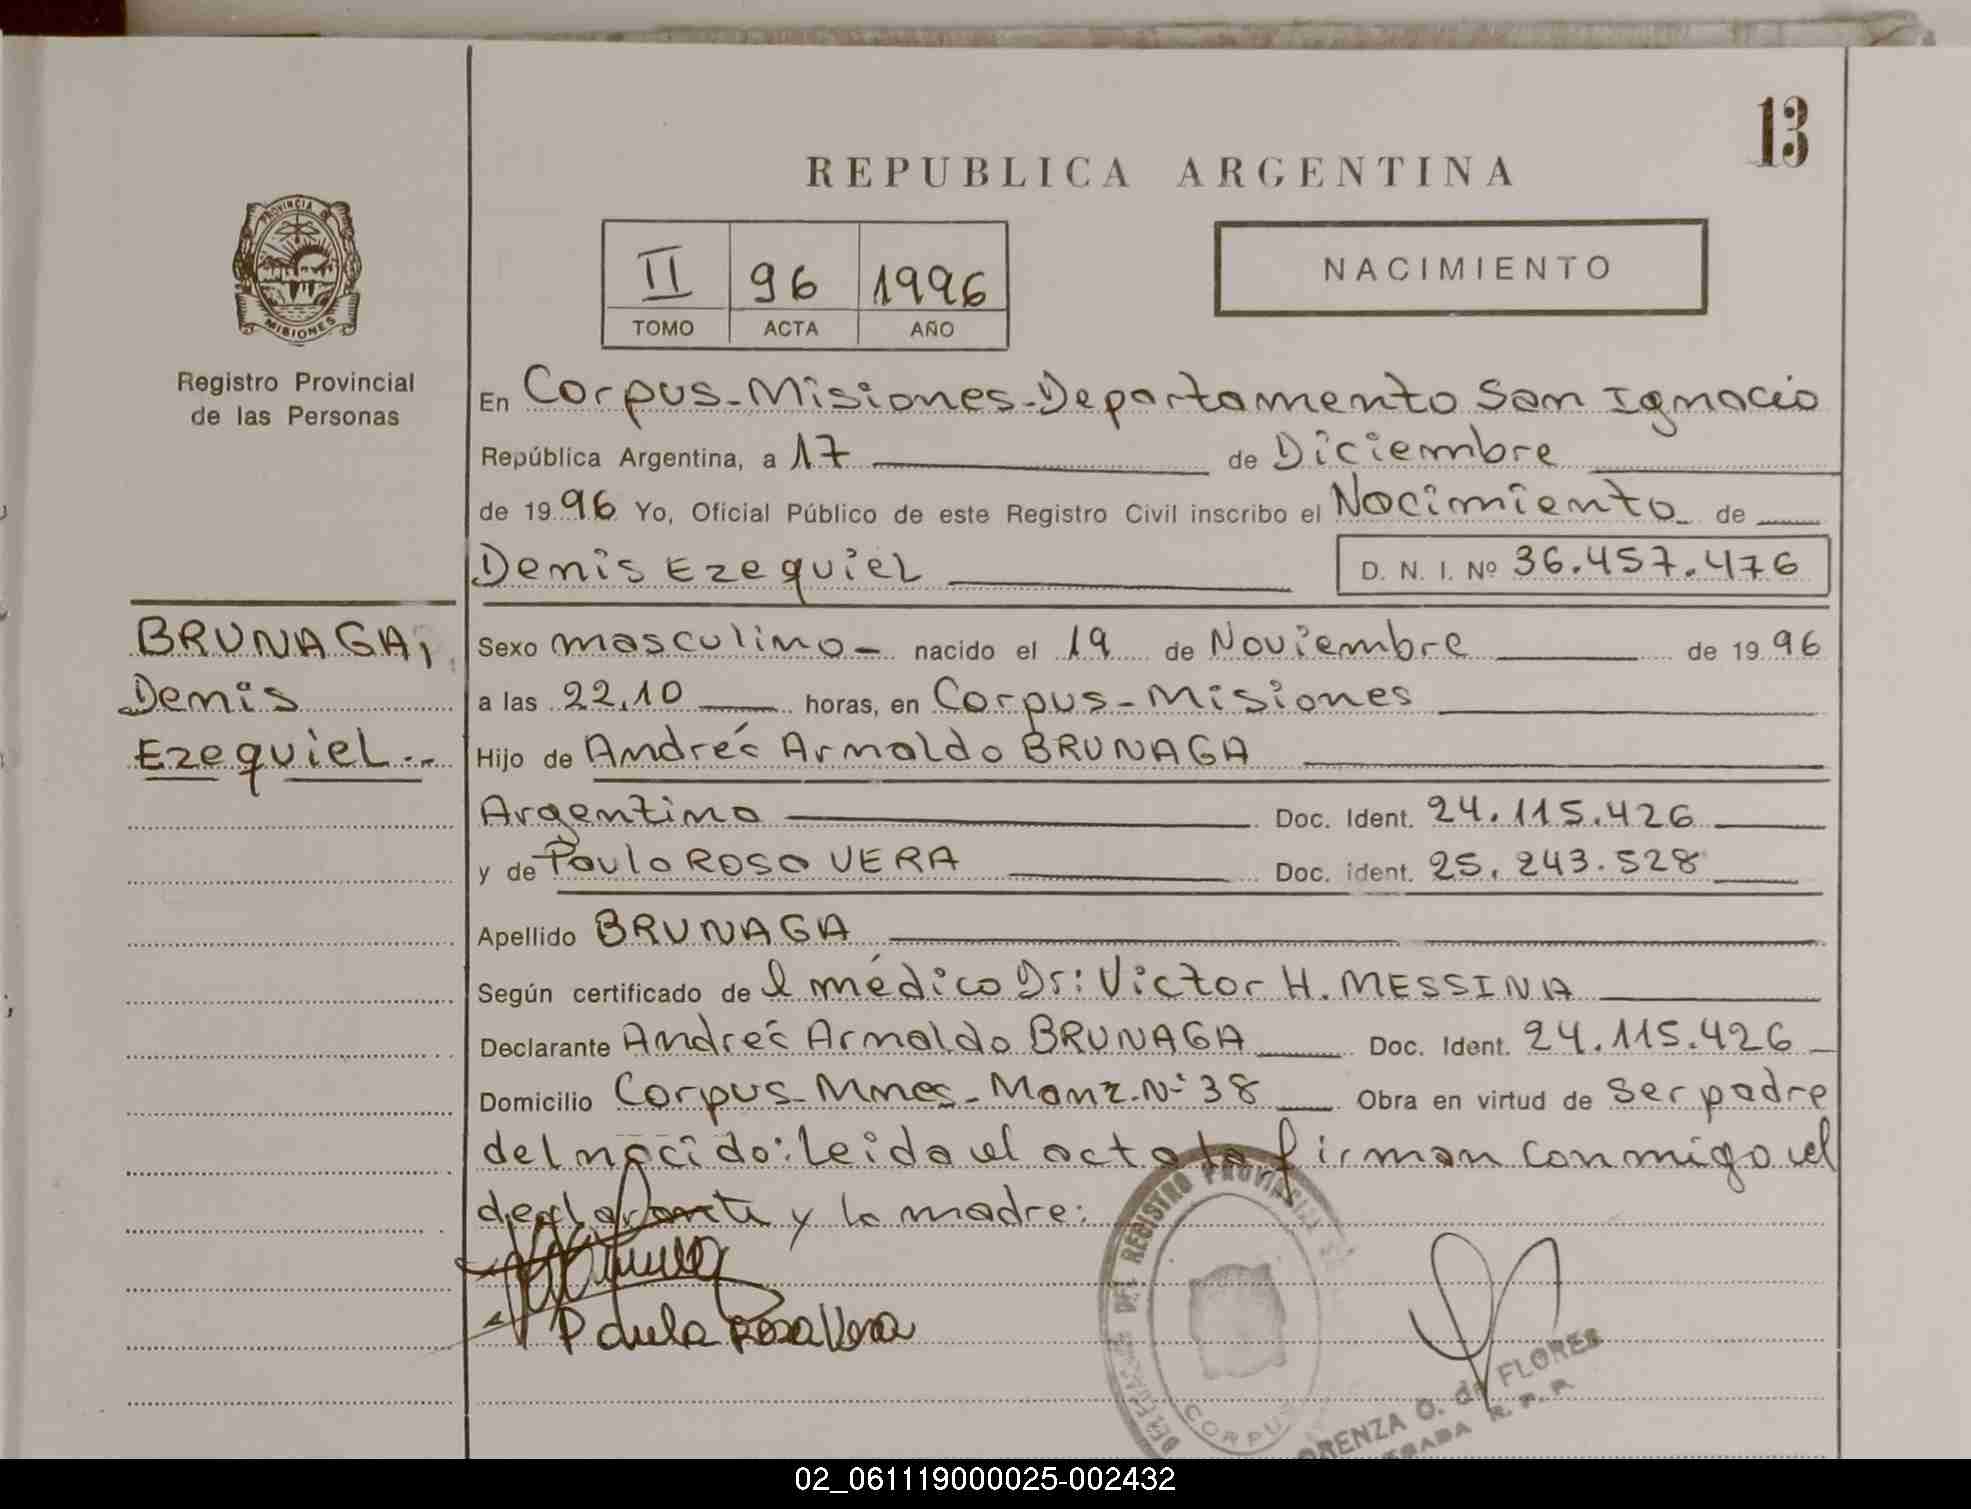 13
REPUBLICA ARGENTINA
PROVINCIA D
MISIONES
Registro Provincial
de las Personas
II 96 1996
TOMO ACTA AÑO
NACIMIENTO
En Corpus-Misiones-Departamento San Ignacio
República Argentina, a 17 de Diciembre
de 1996 Yo, Oficial Público de este Registro Civil inscribo el Nacimiento de
Denis Ezequiel D. N. I. Nº 36.457.476
BRUNAGA,
Denis
Ezequiel.-
Sexo masculino- nacido el 19 de Noviembre de 1996
a las 22,10 horas, en Corpus-Misiones
Hijo de Andrés Arnaldo BRUNAGA
Argentino Doc. Ident. 24.115.426
y de Paula Rosa VERA Doc. ident. 25.243.528
Apellido BRUNAGA
Según certificado de l médico Dr: Victor H. MESSINA
Declarante Andrés Arnaldo BRUNAGA Doc. Ident. 24.115.426
Domicilio Corpus-Mnes-Manz.Nº 38 Obra en virtud de ser padre
del nacido: Leida el acta la firman conmigo el
declarante y la madre:
Paula Rosa Vera
DEL REGISTRO PROVINCIAL
CORPUS
ORENZA O. de FLORES
R. P. P.
02_061119000025-002432